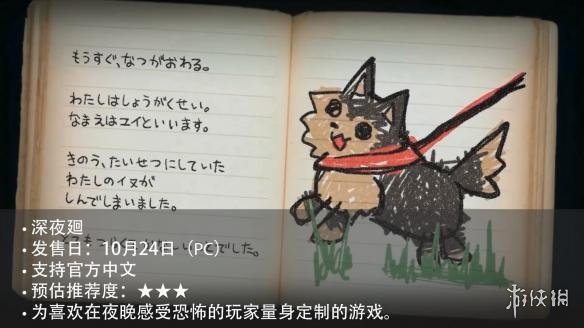 もうすぐ、なつがおわる。
わたしはしょうがくせい。
なまえはユイといいます。
きのう、たいせつにしていた
わたしのイヌが
しんでしまいました。
でした。
• 深夜廻
• 发售日：10月24日（PC）
• 支持官方中文
• 预估推荐度：★★★
• 为喜欢在夜晚感受恐怖的玩家量身定制的游戏。
游侠网